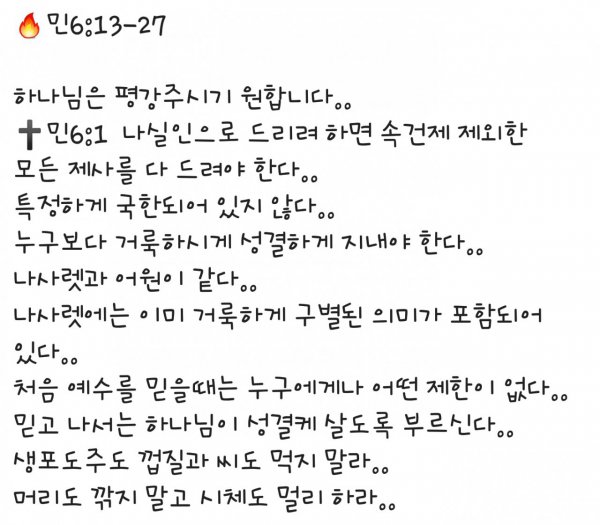 🔥민6:13-27
하나님은 평강주시기 원합니다..
✝민6:1 나실인으로 드리려 하면 속건제 제외한
모든 제사를 다 드려야 한다..
특정하게 국한되어 있지 않다..
누구보다 거룩하시게 성결하게 지내야 한다..
나사렛과 어원이 같다..
나사렛에는 이미 거룩하게 구별된 의미가 포함되어
있다..
처음 예수를 믿을때는 누구에게나 어떤 제한이 없다..
믿고 나서는 하나님이 성결케 살도록 부르신다..
생포도주도 껍질과 씨도 먹지 말라..
머리도 깎지 말고 시체도 멀리 하라..